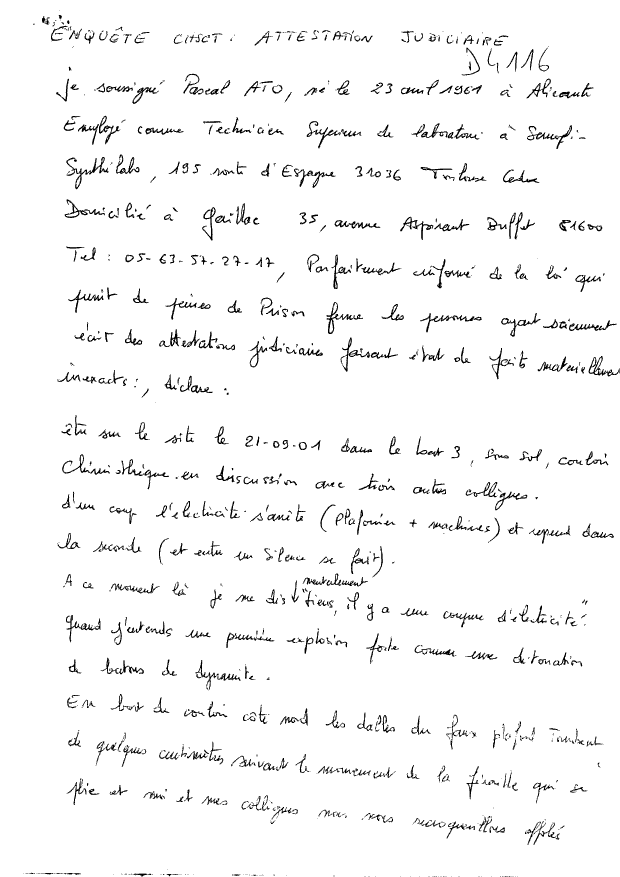 ENQUÊTE CHSCT : ATTESTATION JUDICIAIRE
D4116
je soussigné Pascal ATO, né le 23 avril 1961 à Alicante
Employé comme Technicien Superieur de laboratoire à Sanofi-
Synthélabo, 195 route d'Espagne 31036 Toulouse Cedex
Domicilié à Gaillac 35, avenue Aspirant Buffet 81600
Tel : 05-63-57-27-17, Parfaitement informé de la loi qui
punit de peines de Prison ferme les personnes ayant sciemment
écrit des attestations judiciaires faisant état de faits matériellement
inexacts :, déclare :
etre sur le site le 21-09-01 dans le bat 3, sous sol, couloir
Chimiothèque en discussion avec trois autres collègues.
d'un coup l'electricité s'arrête (plafonnier + machines) et reprend dans
la seconde (et entre un silence se fait).
A ce moment là je me dis mentalement "tiens, il y a une coupure d'électricité".
quand j'entends une première explosion forte comme une détonation
de batons de dynamite.
En bout du couloir côté nord les dalles du faux plafond tombent
de quelques centimètres suivant le mouvement de la ferraille qui se
plie et moi et mes collègues nous nous recroquevillons affolés